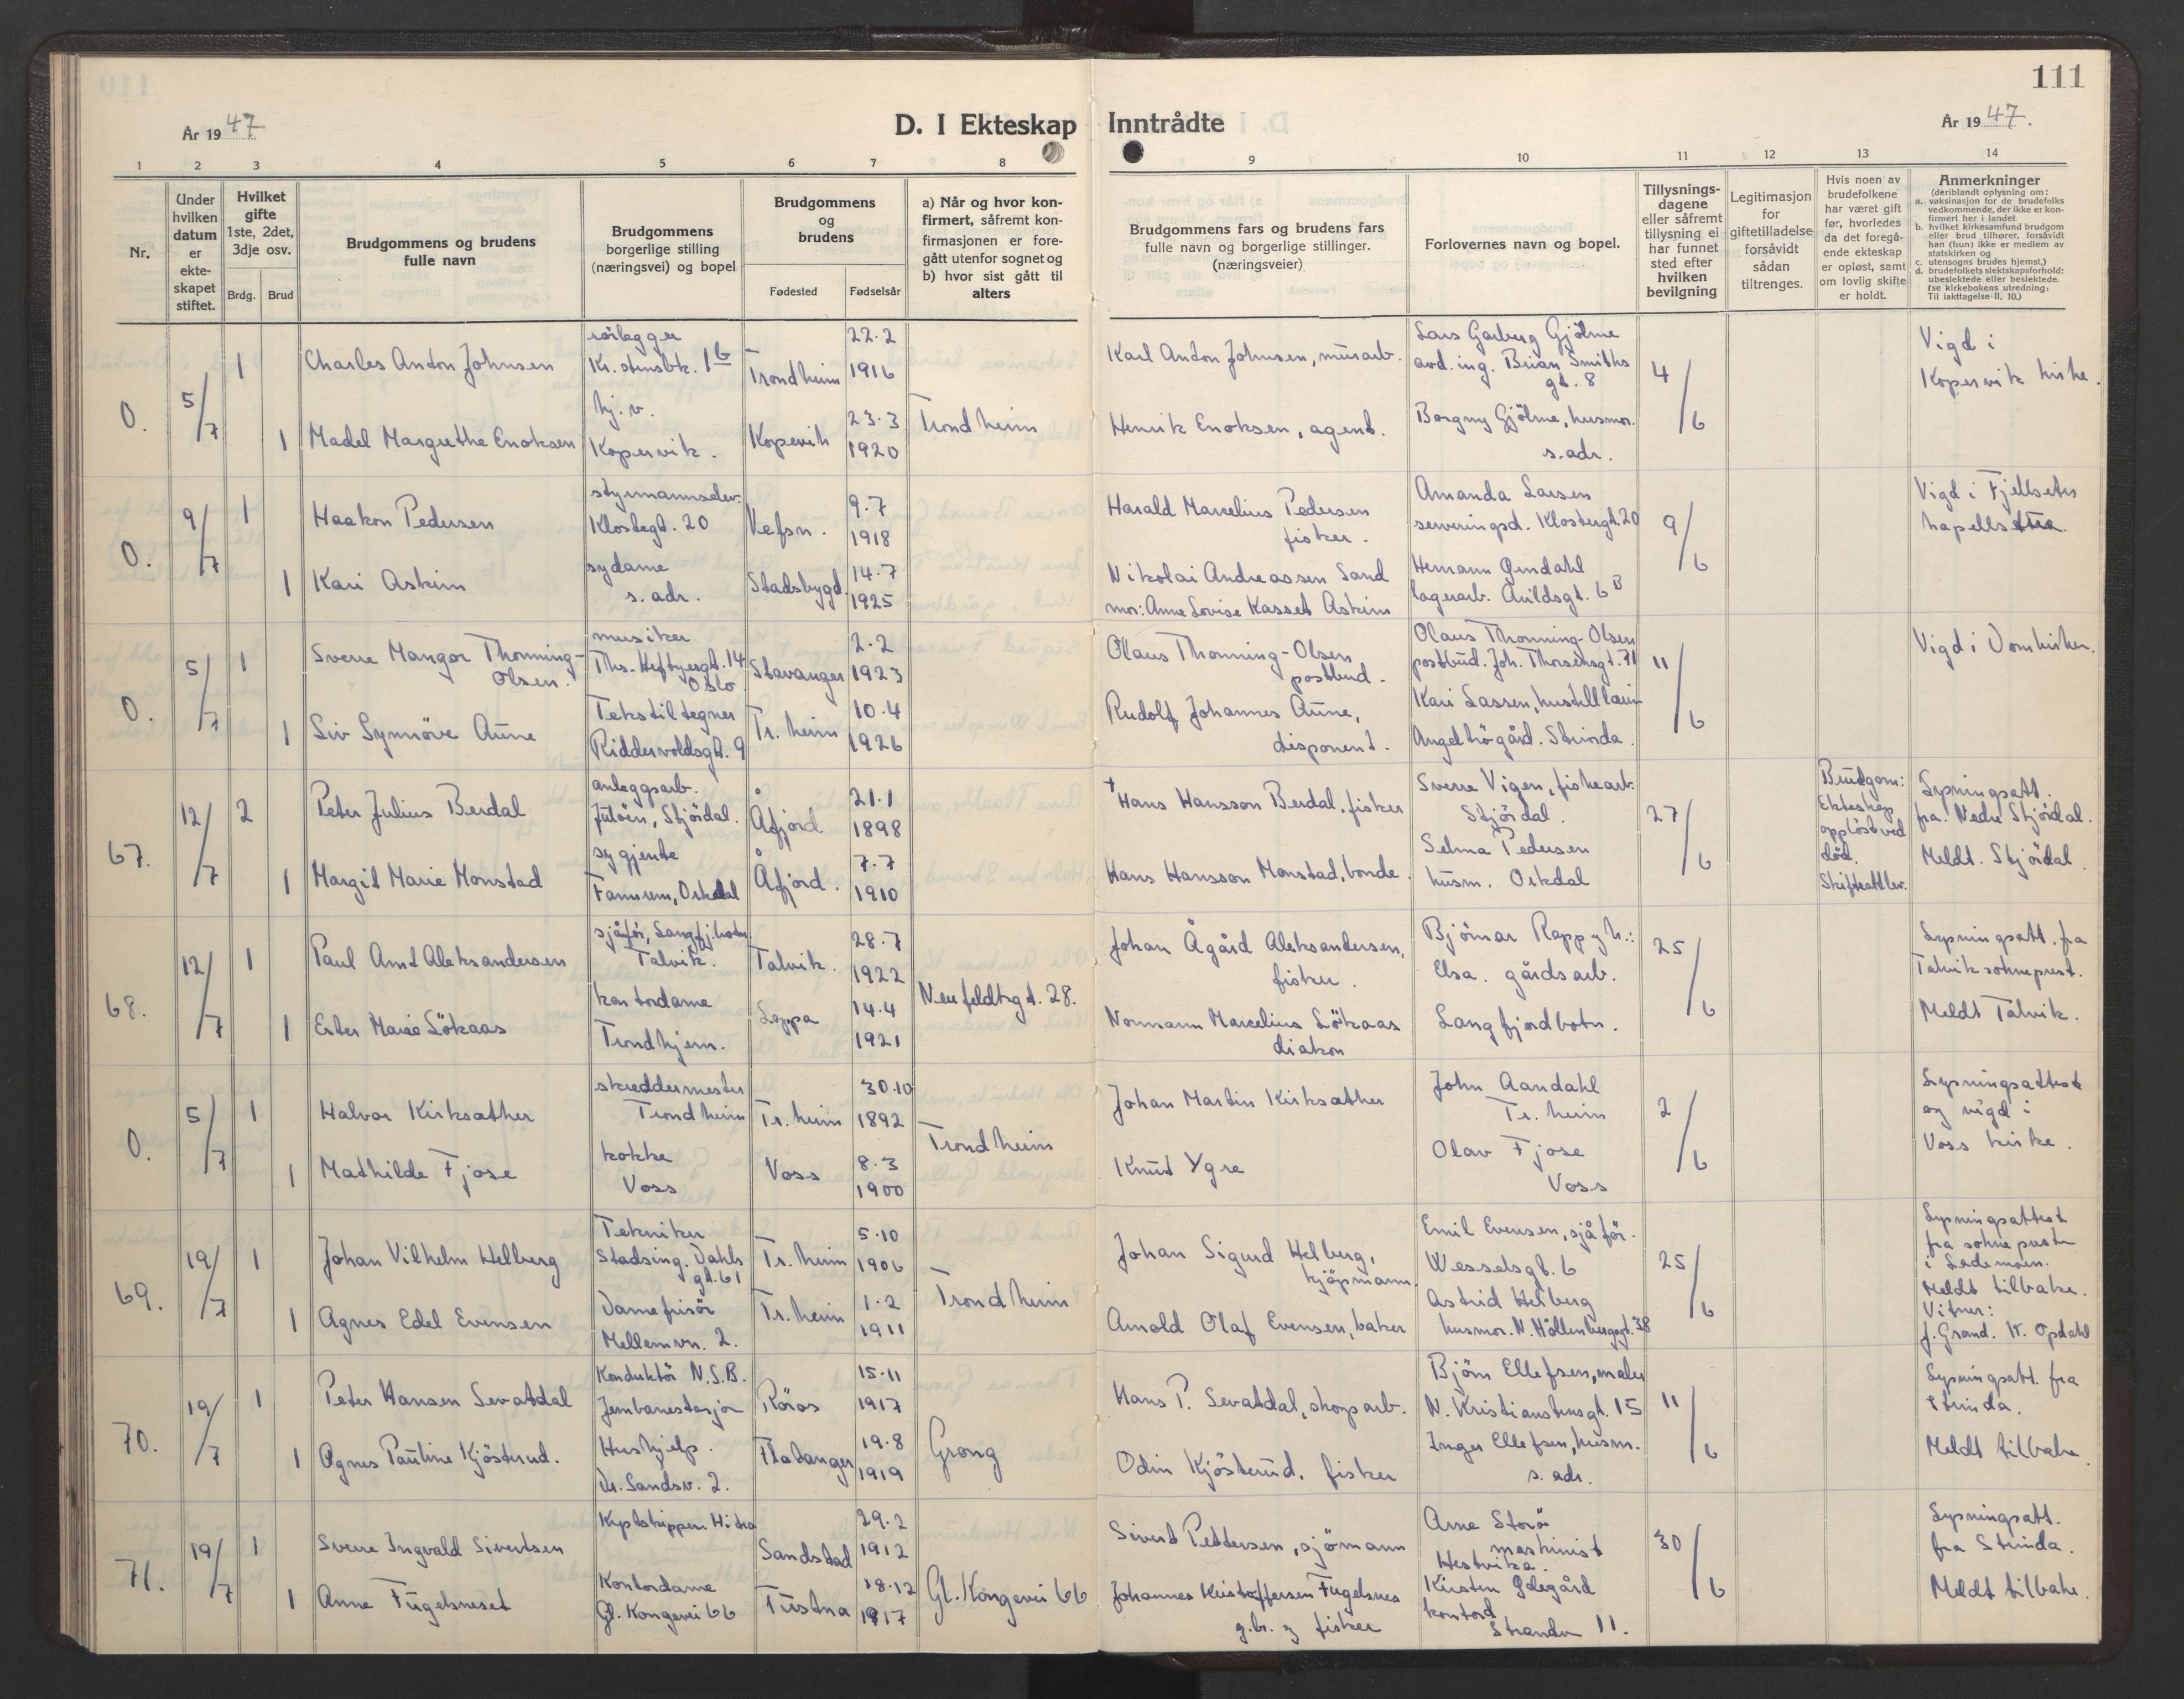 111
År 1947
D. I Ekteskap Inntrådte
År 1947.
1 2 3 4 5 6 7 8 9 10 11 12 13 14
Nr.
Under hvilken datum er ekteskapet stiftet.
Hvilket gifte 1ste, 2det, 3dje osv.
Brdg. Brud
Brudgommens og brudens fulle navn
Brudgommens borgerlige stilling (næringsvei) og bopel
Brudgommens og brudens
Fødested Fødselsår
a) Når og hvor konfirmert, såfremt konfirmasjonen er foregått utenfor sognet og b) hvor sist gått til alters
Brudgommens fars og brudens fars fulle navn og borgerlige stillinger. (næringsveier)
Forlovernes navn og bopel.
Tillysningsdagene eller såfremt tillysning ei har funnet sted efter hvilken bevilgning
Legitimasjon for giftetilladelse forsåvidt sådan tiltrenges.
Hvis noen av brudefolkene har været gift før, hvorledes da det foregående ekteskap er opløst, samt om lovlig skifte er holdt.
Anmerkninger
(deriblandt oplysning om:
a. vaksinasjon for de brudefolks vedkommende, der ikke er konfirmert her i landet
b. hvilket kirkesamfund brudgom eller brud tilhører, forsåvidt han (hun) ikke er medlem av statskirken og
c. utensogns brudes hjemst.)
d. brudefolkets slektskapsforhold: ubeslektede eller beslektede. (se kirkebokens utredning: Til iakttagelse II, 10.)
0. 5/7 1 Charles Anton Johnsen rørlegger Kr. stensbk. 1b Trondheim 22.2 1916 Karl Anton Johnsen, murarb. Lars Garberg Gjølme avd. ing. Brian Smiths gt. 8 4/6 Vigd i Kopervik kirke.
1 Madel Margrethe Enoksen hj. v. Kopervik. Kopervik 23.3 1920 Trondheim Henrik Enoksen, agent. Borgny Gjølme, husmor. s. adr.
0. 9/7 1 Haakon Pedersen styrmannselev. Klostergt. 20 Vefsn. 9.7 1918 Harald Marcelius Pedersen fisker. Amanda Larsen serveringsd. Klostergt. 20 9/6 Vigd i Fjellseter kapell
1 Kari Askim sydame s. adr. Stadsbygd. 14.7 1925 Nikolai Andreassen Sand mor: Anne Lovise Kasset Askim Hemann lagerarb. 6 B
0. 5/7 1 Sverre Mangor Thonning-Olsen. musiker Ths. Heftyesgt. 14 Oslo Stavanger 2.2 1923 Olaus Thonning-Olsen postbud. Olaus Thonning-Olsen postbud. Joh. Thorsensgt. 71 11/6 Vigd i Domkirken.
1 Siv Synnøve Aune Tekstiltegner Riddervoldsgt. 9 Tr. heim 10.4 1926 Rudolf Johannes Aune, disponent. Kari Lassen, Angeltrøgård. Strinda.
67. 12/7 2 Peter Julius Berdal anleggsarb. Stjørdal. Åfjord 21.1 1898 † Hans Hansson Berdal, fisker Sverre Vigen, fiskearb. Stjørdal. 27/6 Brudgom: Ekteskap oppløst ved død. Skifteatt. lev. Lysningsatt. fra Nedre Stjørdal. Meldt. Stjørdal.
1 Margit Marie Monstad sygjente Fannrem, Orkdal Åfjord. 7.7 1910 Hans Hansson Monstad, bonde. Selma Pedersen husm. Orkdal
68. 12/7 1 Paul Arnt Aleksandersen sjåfør, Langfj. botn. Talvik. Talvik. 28.7 1922 Johan Ågård Aleksandersen, fisker. Bjørnar Rapp og h.: Elsa. gårdsarb. Langfjordbotn. 25/6 Lysningsatt. fra Talvik sokneprest. Meldt Talvik.
1 Ester Marie Løkaas kontordame Trondhjem. Loppa 14.4 1921 Neufeldtsgt. 28. Normann Marcelius Løkaas diakon
0. 5/7 1 Halvor Kirksæther skreddermester Trondheim Tr. heim 30.10 1892 Johan Martin Kirksæther John Aandahl Tr. heim 2/6 Lysningsattest og vigd i Voss kirke.
1 Mathilde Fjose kokke Voss Voss 8.3 1900 Trondheim Knut Ygre Olav Fjose Voss
69. 19/7 1 Johan Vilhelm Helberg Tekniker Stadsing. Dahls gt. 61 Tr. heim 5.10 1906 Johan Sigurd Helberg, kjøpmann. Emil Evensen, sjåfør. Wesselsgt. 6 25/6 Lysningsattest fra sokneprest i Lademoen. Meldt tilbake. Vitner: J. Grand. K. Opdahl
1 Agnes Edel Evensen Damefrisør Mellemvn. 2. Tr. heim 1.2 1911 Trondheim Arnold Olaf Evensen, baker Astrid Helberg husmor. N. Møllenbergsgt. 38
70. 19/7 1 Peter Hansen Sevatdal Konduktør N.S.B. Jernbanestasjon Røros 15.11 1917 Hans P. Sevatdal, skogsarb. Bjørn Ellefsen, maler N. Kristianstensgt. 15 11/6 Lysningsatt. fra Strinda. Meldt tilbake.
1 Agnes Pauline Kjøsterud. Hushjelp. Dr. Sandsv. 2. Flatanger 19.8 1919 Grong Odin Kjøsterud. fisker Inger Ellefsen, husm. s. adr.
71. 19/7 1 Sverre Ingvald Sivertsen Kystskipper. Hitra Sandstad 29.2 1912 Sivert Pettersen, sjømann Arne Storø maskinist Hestvika. 30/6 Lysningsatt. fra Strinda. Meldt tilbake.
1 Anne Fugelsneset Kontordame Gl. Kongevei 66 Tustna 18.12 1917 Gl. Kongevei 66 Johannes Kristoffersen Fugelsnes g.br. og fisker Kirsten kontord. 11.